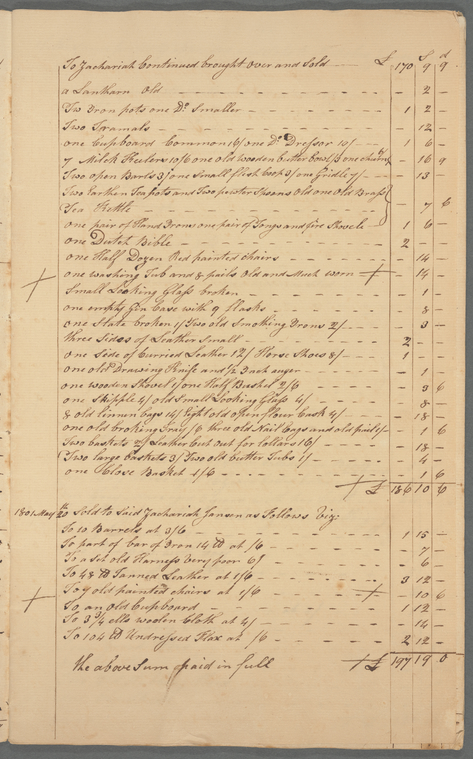 S d
To Zachariah Continued brought over and Sold £ 170 9 9
a Lanthorn Old - 2 -
Two Iron pots one Do Smaller 1 2 -
Two Tramals - 12 -
one Cupboard Common 16/ one Do Dressor 10/ 1 6 -
7 Milck Keelers 10/6 one old wooden butter bowl /3 one churn 6/ - 16 9
Two open Barls 3/ one Small fish Coop 3/ one Gridle 7/ - 13 -
Two Earthen Teapots and Two pewter Spoons Old one Old Brass
Tea Kettle - 7 6
one pair of Hand Irons one pair of Tongs and fire Shovele 1 6 -
one Dutch Bible 2 - -
one Half Dozen Red painted chairs - 14 -
one washing Tub and 8 pails Old and Much worn - 14 -
Small Looking Glass broken - 1 -
one empty Gin Case with 9 flasks - 8 -
one Slate broken 1/ Two old Smothing Irons 2/ - 3 -
three Sides of Leather Small 2 - -
one Side of Curried Leather 12/ Horse Shoes 8/ 1 - -
one old Drawing Knife and 1/2 Inch auger - 1 -
one wooden Shovel 1/ one Half Bushel 2/6 - 3 6
one Skipple 4/ old Small Looking Glass 4/ - 8 -
8 old linnen bags 14/ Eight old open flour Cask 4/ - 18 -
one old broking Tray /6 three old Nail Cags and old pail 1/ - 1 6
Two baskets 2/ Leather Cut out for Collars 16/ - 18 -
Two large baskets 3/ Two old butter Tubs 1/ - 4 -
one Close Basket 1/6 - 1 6
£ 186 10 6
1801 May 20th Sold to Said Zachariah Jansen as Follows Viz:
To 10 Barrels at 3/6 1 15 -
To part of bar of Iron 14 lb at /6 - 7 -
To a set old Harness very poor 6/ - 6 -
To 48 lb Tanned Leather at 1/6 3 12 -
To 7 old painted chairs at 1/6 - 10 6
To an old Cupboard 1 12 -
To 3 3/4 ells woolen Cloth at 4/ - 14 -
To 104 lb Undressed Flax at /6 2 12 -
the above Sum paid in full £ 197 19 0